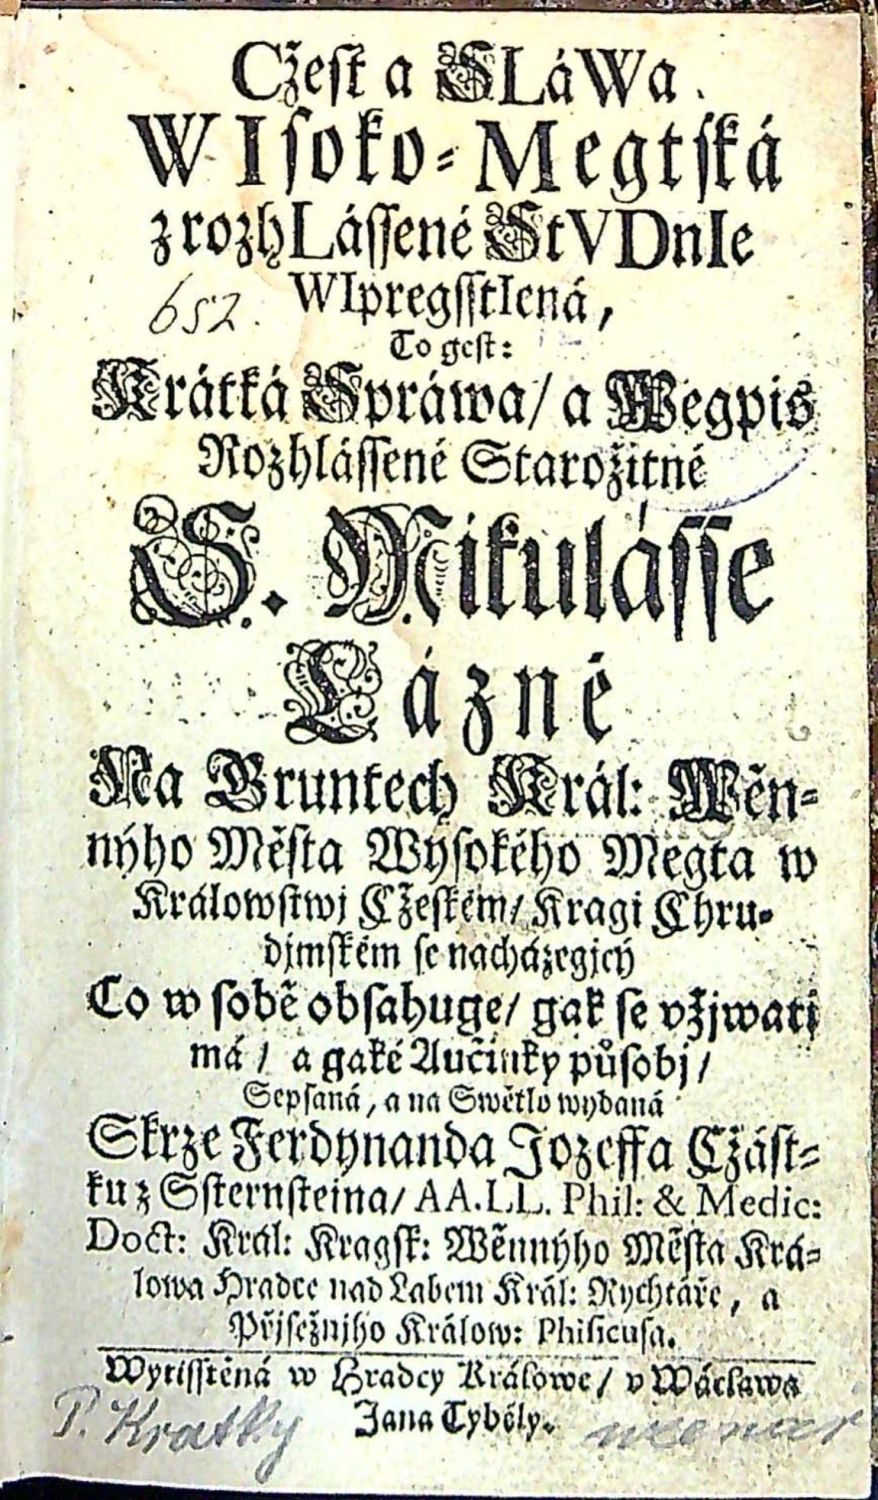 Cžest a SLáWa
WIsoko-Megtská
z rozhLássené StVDnIe
WIpregsstIená,
652.
To gest:
Krátká Spráwa/ a Wegpis
Rozhlássené Starožitné
S. Mikulásse
Lázně
Na Gruntech Král: Wěn-
nýho Města Wysokého Megta w
Králowstwj Cžeském/ Kragi Chru-
djmském se nacházegjcý
Co w sobě obsahuge/ gak se vžjwati
má/ a gaké Aučinky působj/
Sepsaná, a na Swětlo wydaná
Skrze Ferdynanda Jozeffa Cžást-
ku z Ssternsteina/ AA.LL. Phil: & Medic:
Doct: Král: Kragsk: Wěnnýho Města Krá-
lowa Hradce nad Labem Král: Rychtáře, a
Přjsežnjho Králow: Phisicusa.
Wytisstěná w Hradcy Králowe/ v Wácslawa
Jana Tybély.
P. Kratky